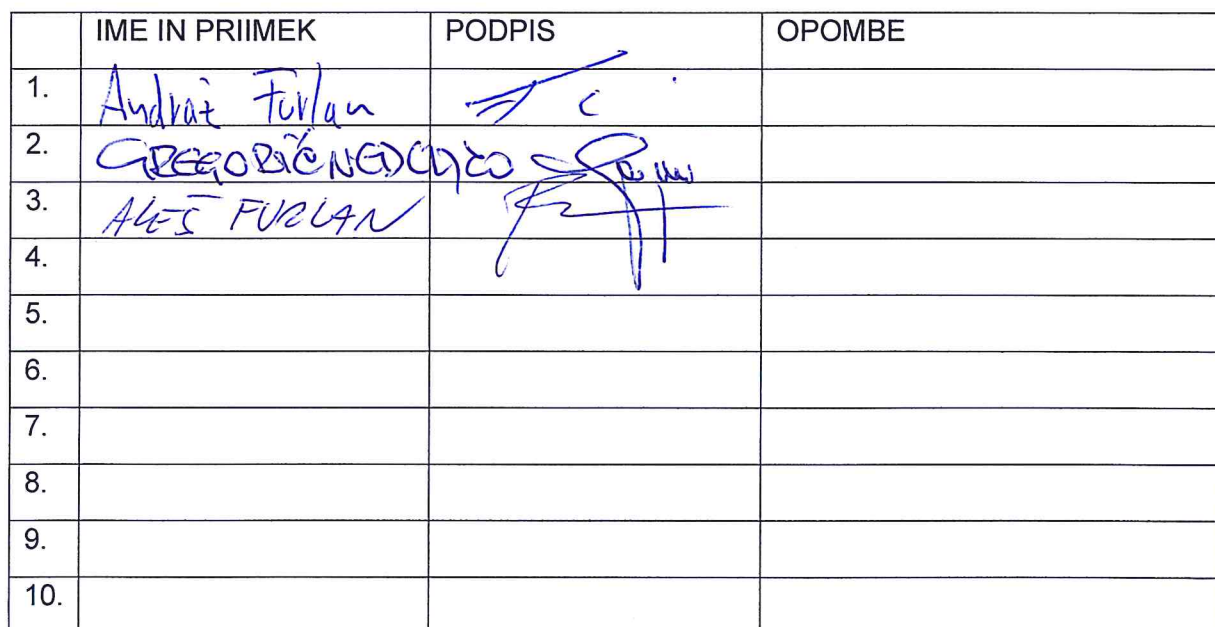 IME IN PRIIMEK PODPIS OPOMBE
1. Andraž Furlan
2. GREGORIČ
3. ALEŠ FURLAN
4.
5.
6.
7.
8.
9.
10.